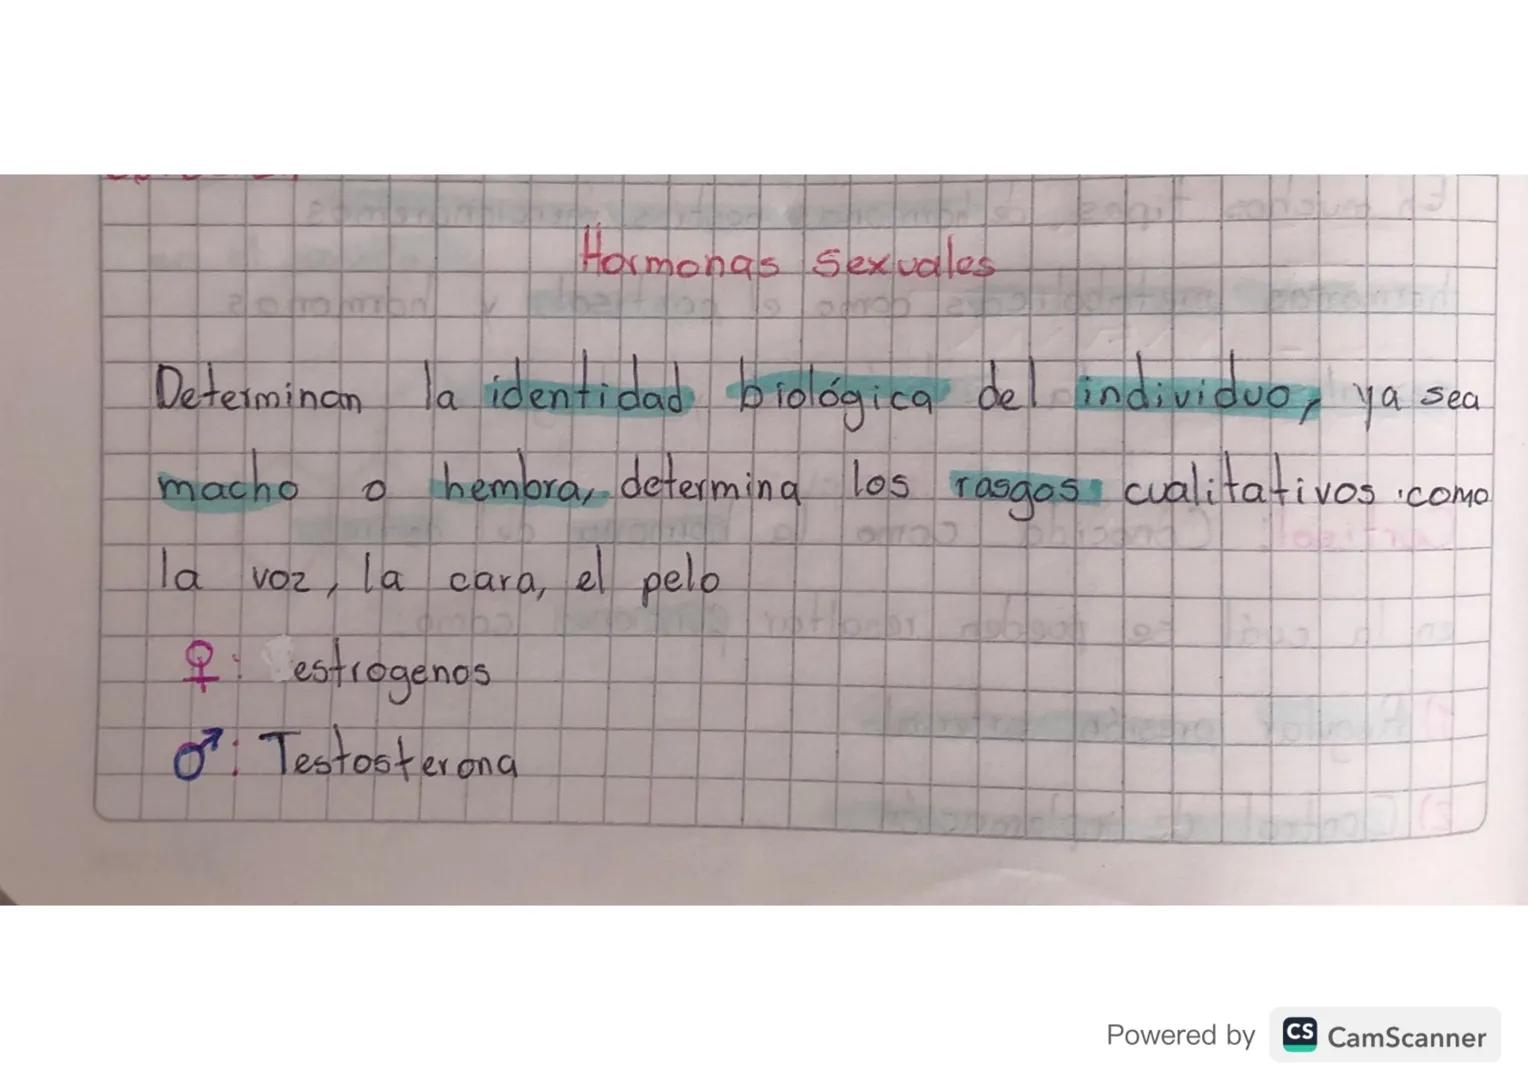 Hormonas Sexuales
Determinan la identidad biológica del individuo, ya sea
macho o hembra, determina los rasgos cualitativos como
la voz, la cara, el pelo
♀: estrogenos
♂: Testosterona
Powered by CS CamScanner